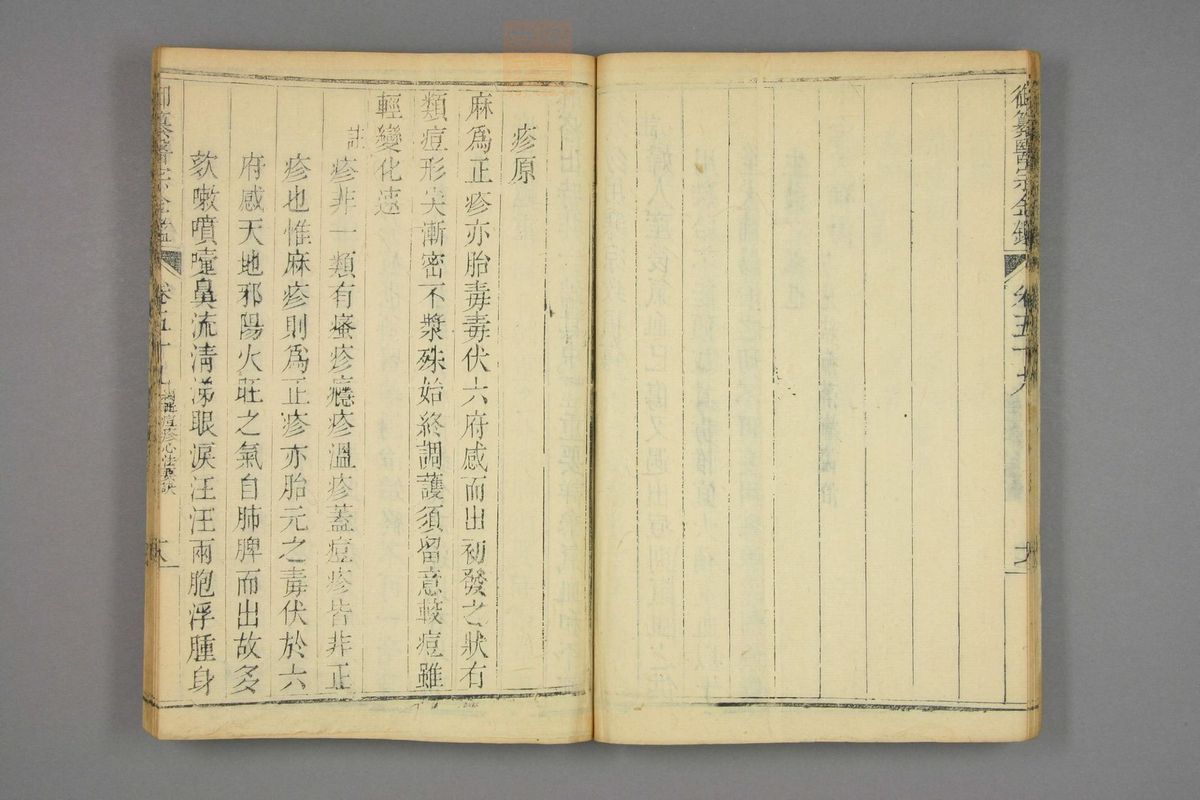 御纂醫宗金鑑 卷五十九
疹原
麻爲正疹亦胎毒毒伏六府感而出初發之狀有
類痘形尖漸密不漿殊始終調護須留意較痘雖
輕變化速
註 疹非一類有瘙疹癮疹溫疹蓋痘疹皆非正
疹也惟麻疹則爲正疹亦胎元之毒伏於六
府感天地邪陽火旺之氣自肺脾而出故多
欬嗽噴嚏鼻流清涕眼淚汪汪兩胞浮腫身
御纂醫宗金鑑 卷五十九 痘疹心法要訣